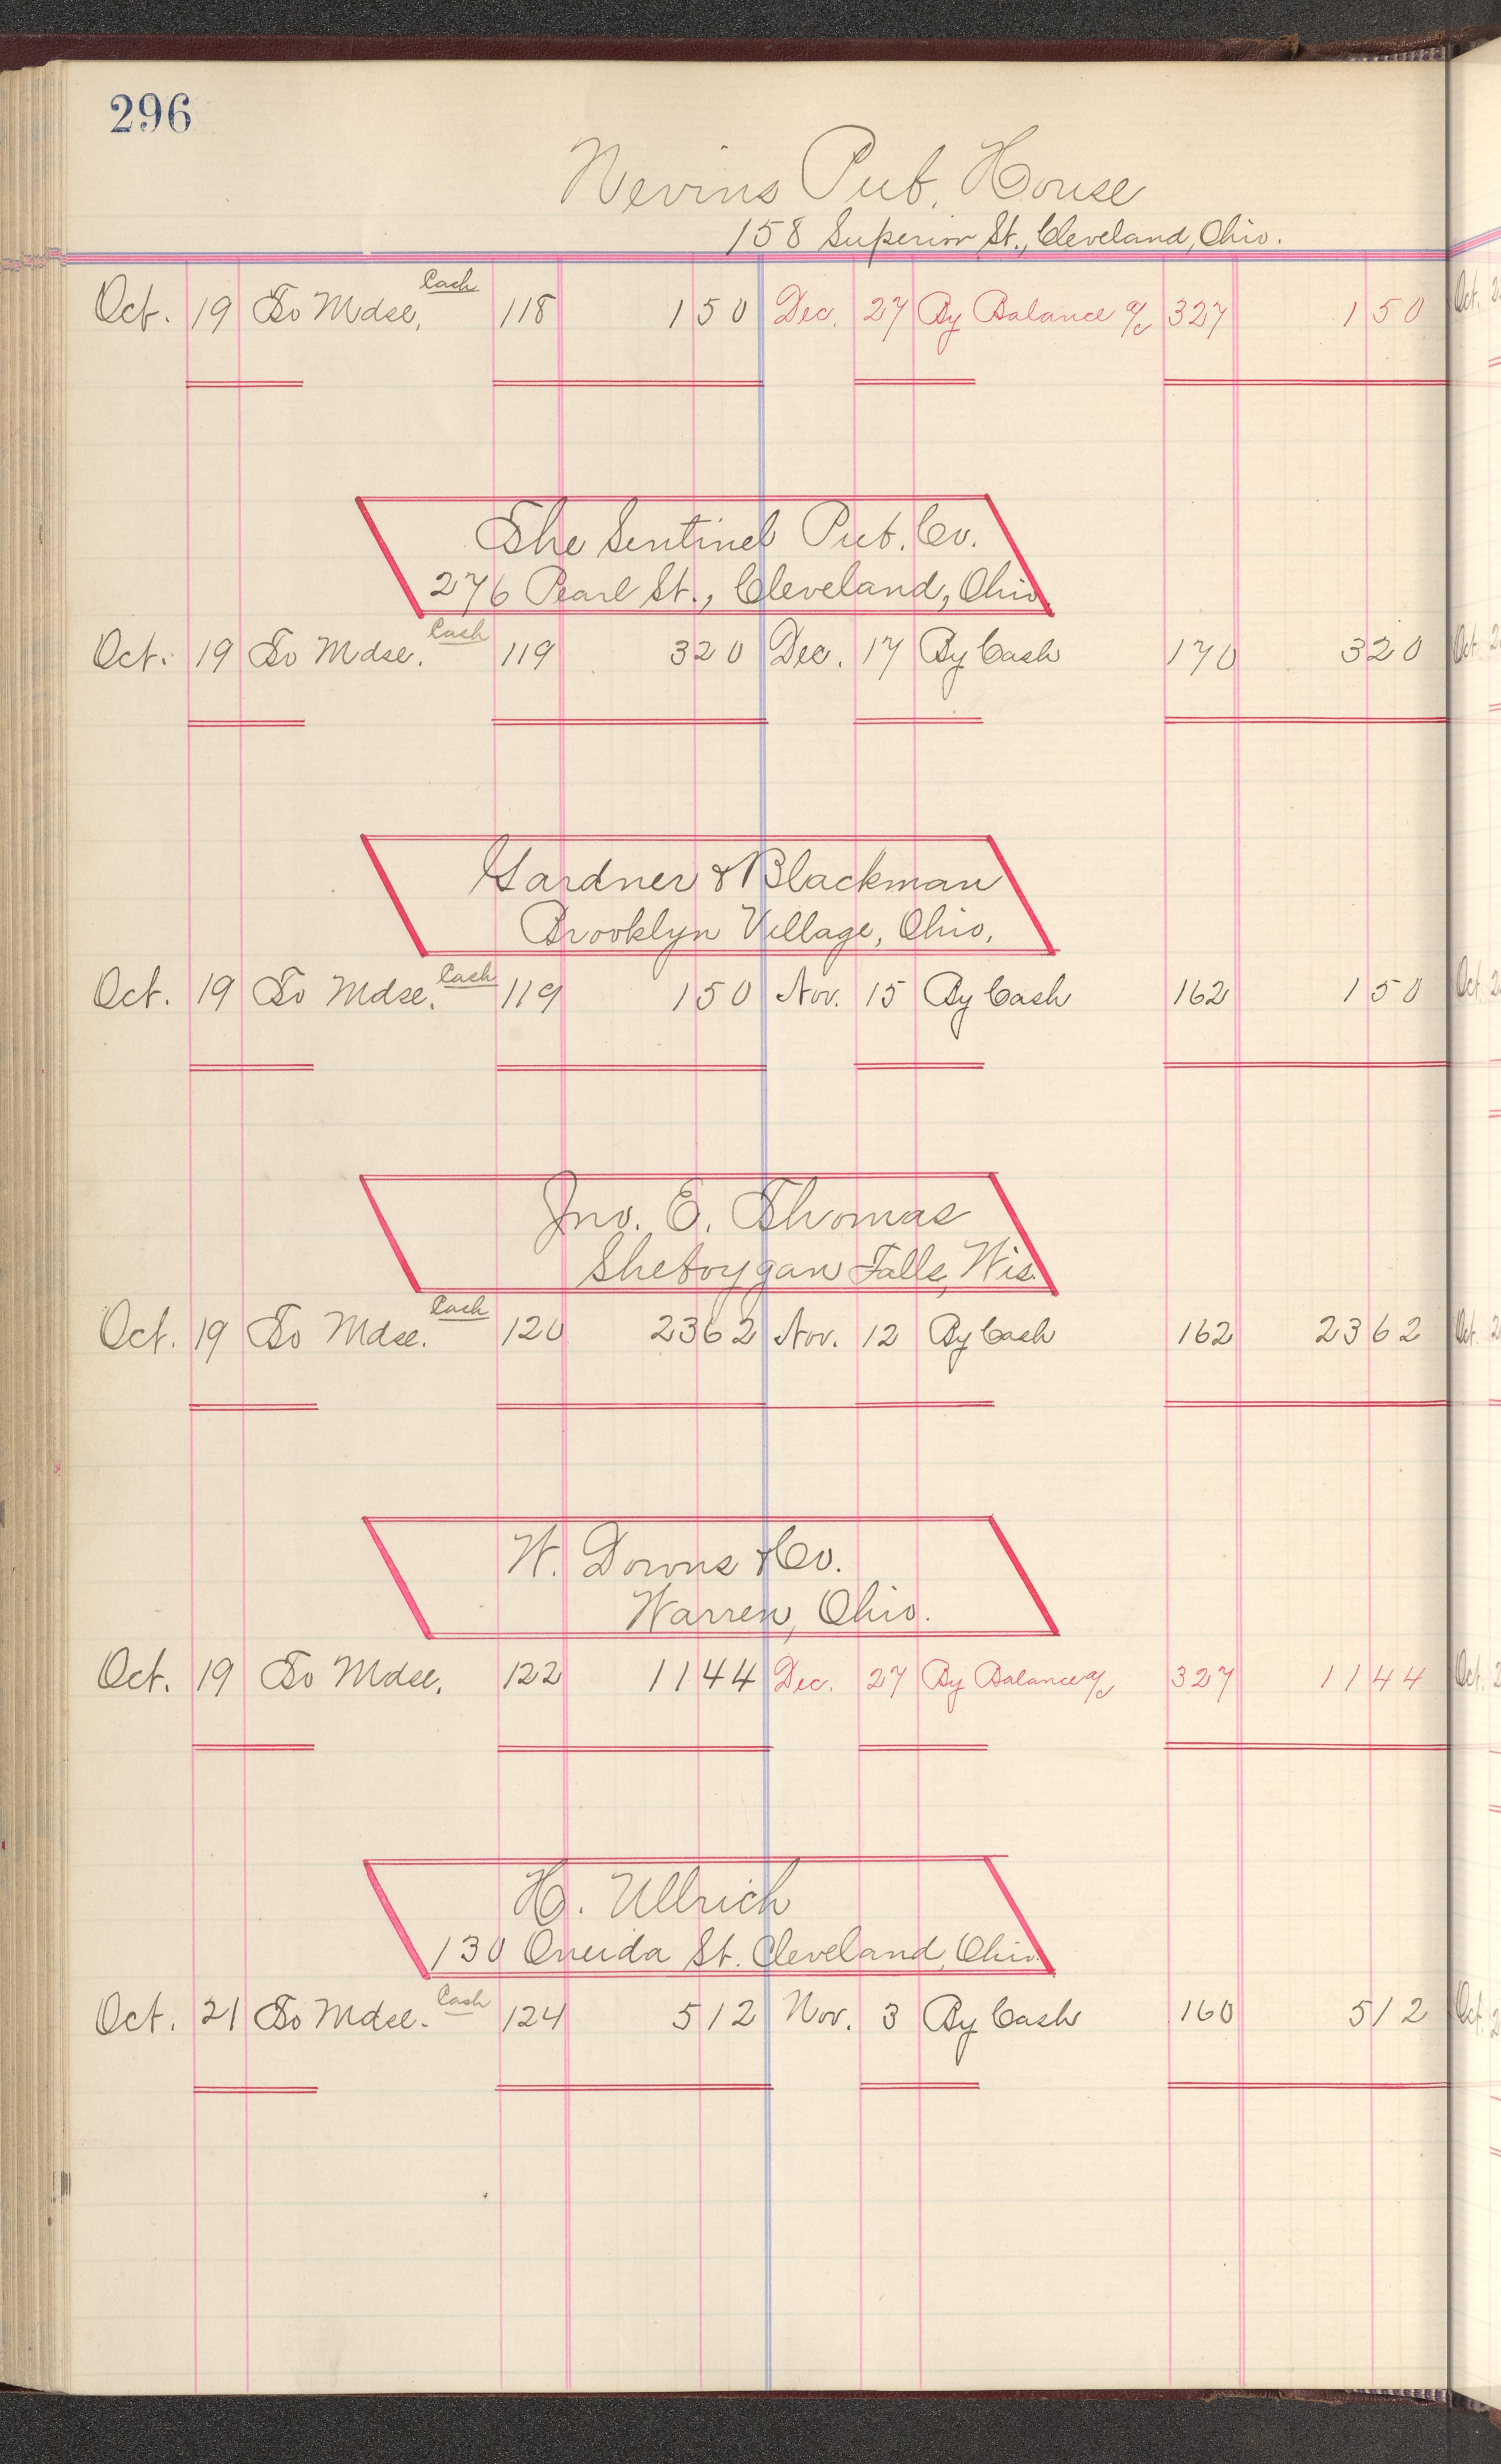 296
Nevins Pub. House
158 Superior St., Cleveland, Ohio.
Oct. 19 To Mdse, Cash 118 1 50 Dec. 27 By Balance a/c 327 1 50
The Sentinel Pub. Co.
276 Pearl St., Cleveland, Ohio.
Oct. 19 To Mdse. Cash 119 3 20 Dec. 17 By Cash 170 3 20
Gardner & Blackman
Brooklyn Village, Ohio,
Oct. 19 To Mdse. Cash 119 1 50 Nov. 15 By Cash 162 1 50
Jno. E. Thomas
Sheboygan Falls, Wis.
Oct. 19 To Mdse. Cash 120 23 62 Nov. 12 By Cash 162 23 62
W. Downs & Co.
Warren, Ohio.
Oct. 19 To Mdse, 122 11 44 Dec. 27 By Balance a/c 327 11 44
H. Ullrich
130 Oneida St. Cleveland, Ohio.
Oct. 21 To Mdse. Cash 124 5 12 Nov. 3 By Cash 160 5 12